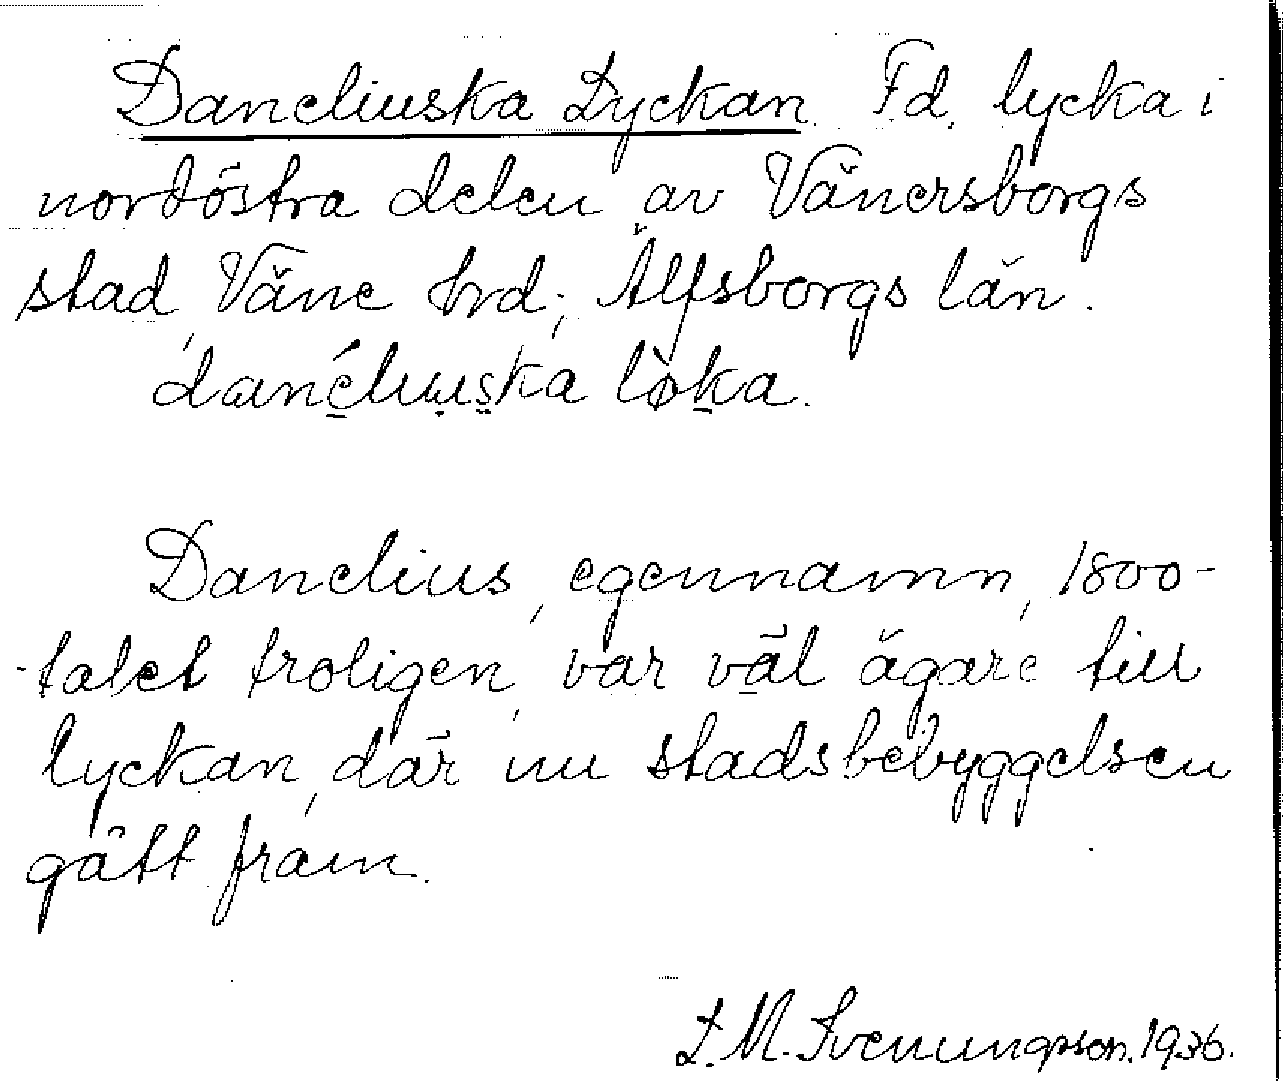 Daneliuska Lyckan. F.d. lycka i
nordöstra delen av Vänersborgs
stad, Väne hrd; Älfsborgs län.
danéliuska lòka.
Danelius, egennamn, 1800-
-talet troligen, var väl ägare till
lyckan, där nu stadsbebyggelsen
gått fram.
L. M. Svenungsson. 1936.